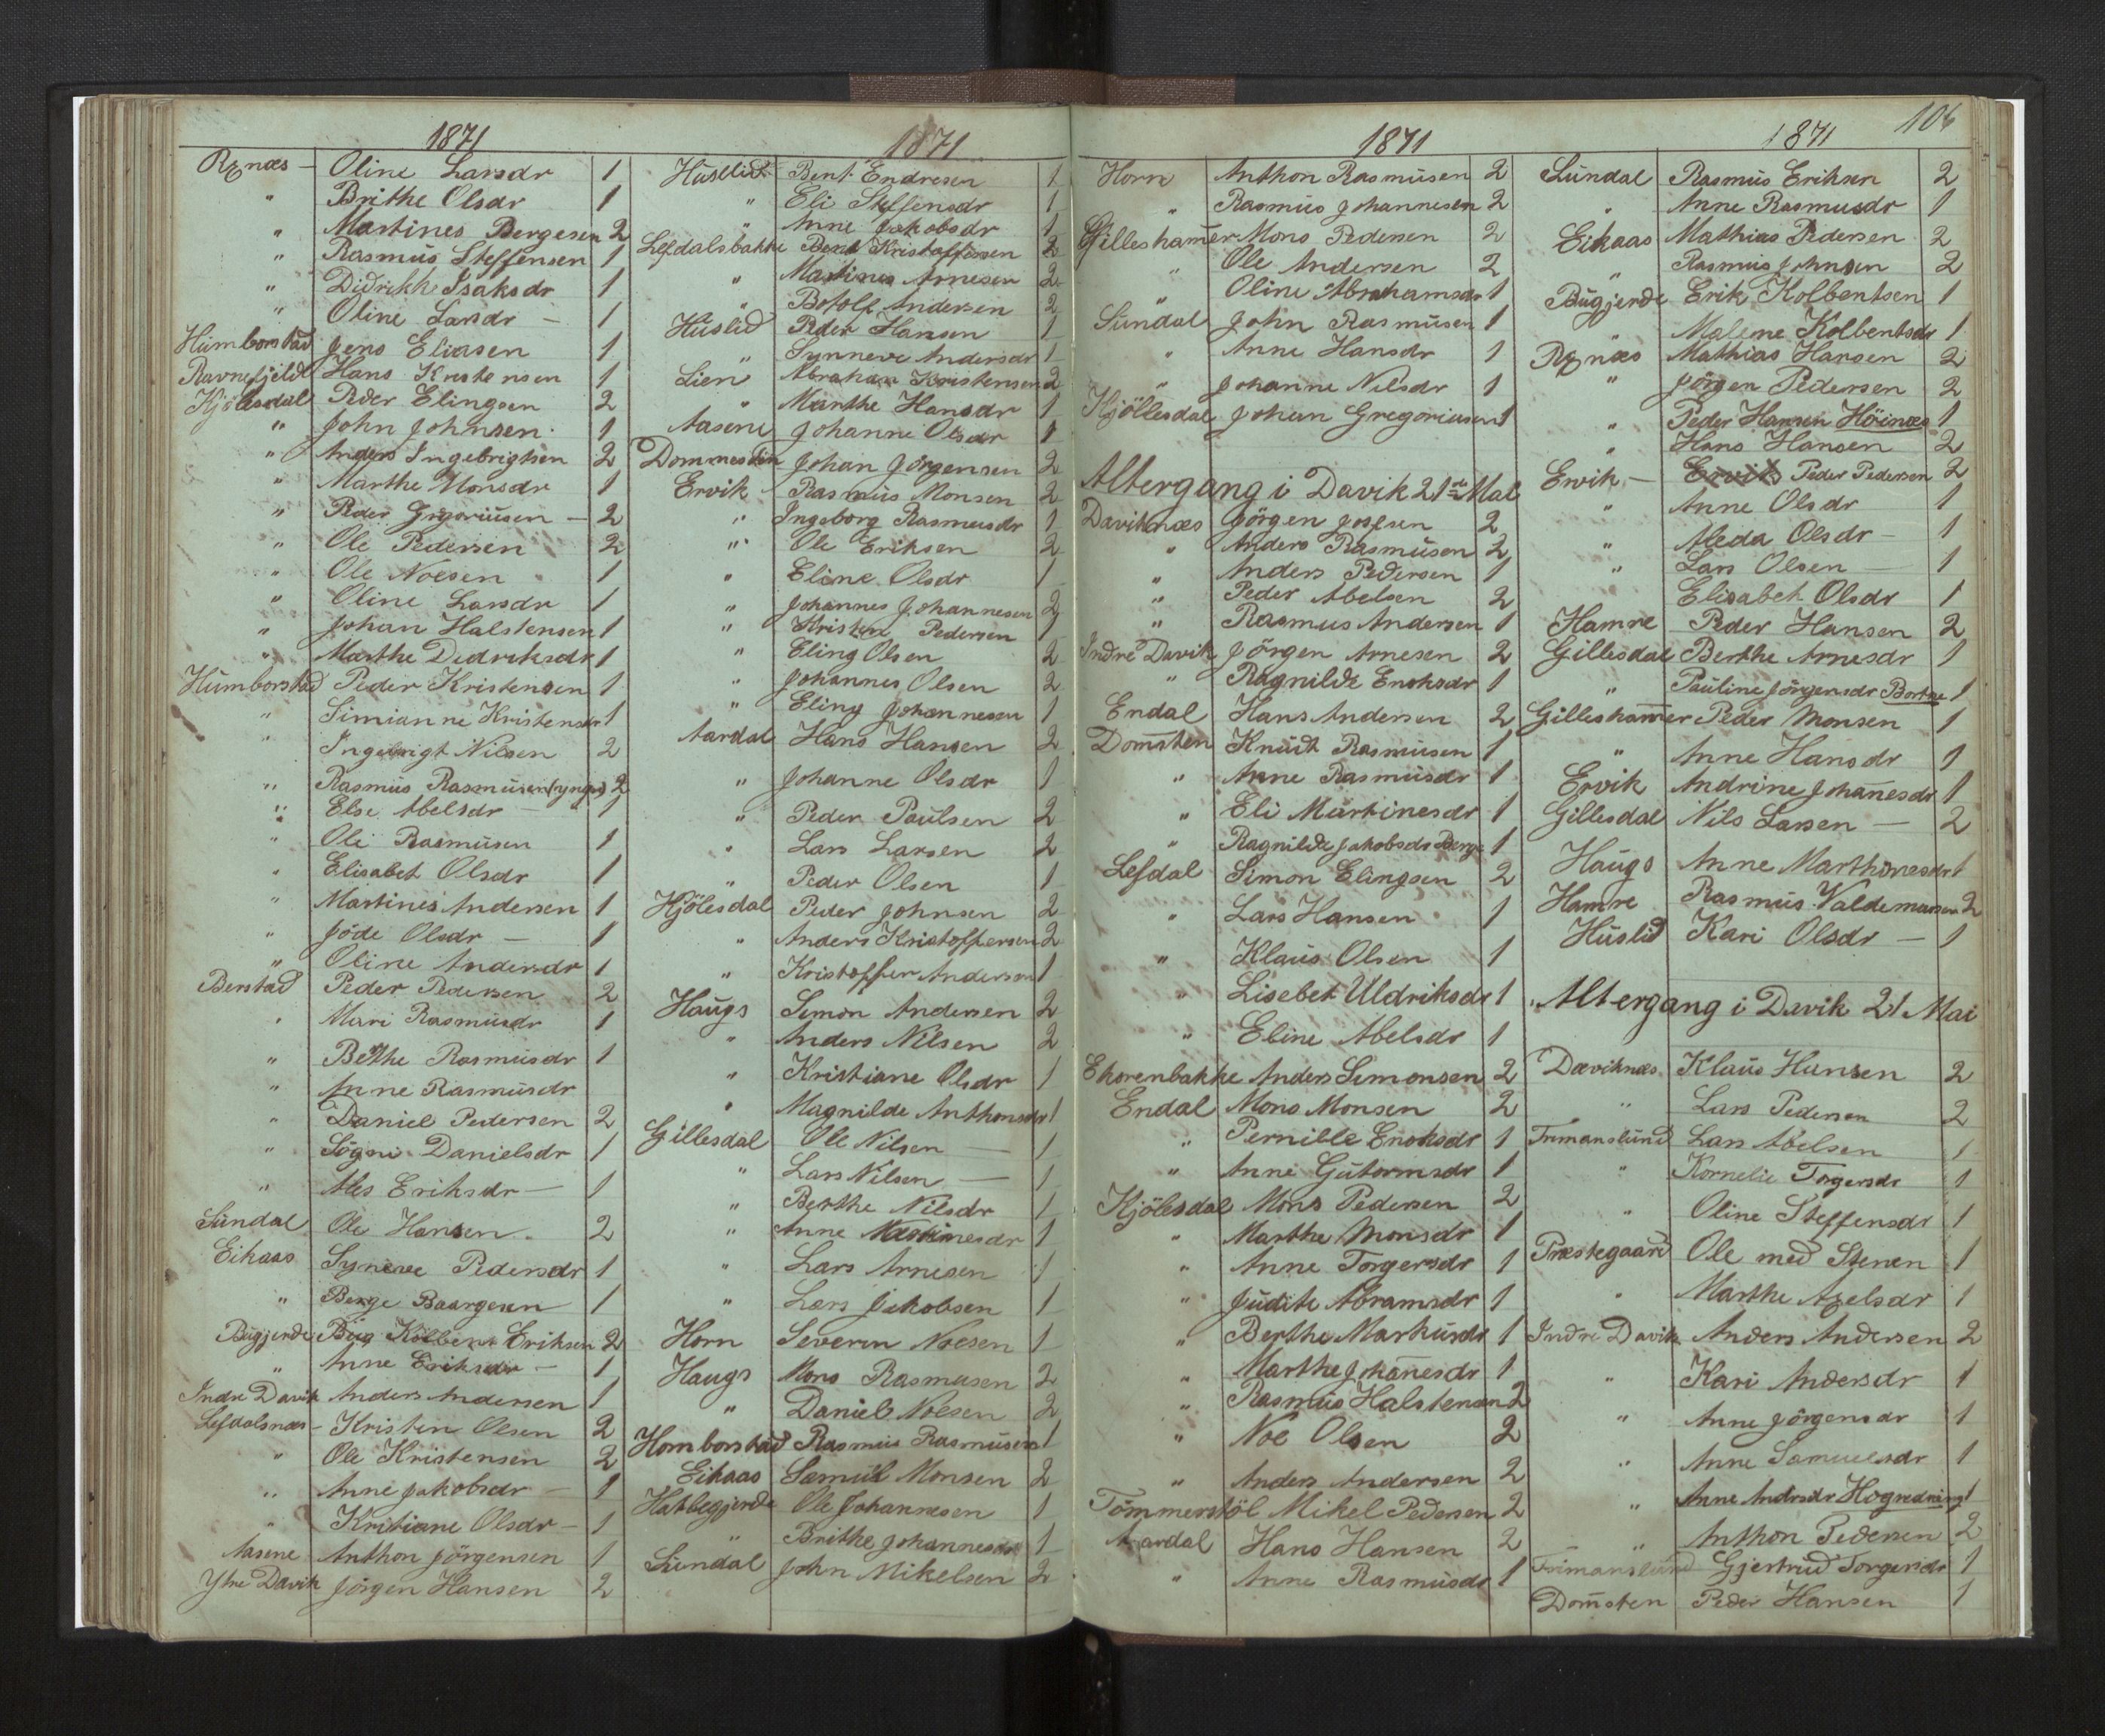 1871
Rønæs - Oline Larsdr 1
" Brithe Olsdr 1
" Martines Bergesen 2
" Rasmus Steffensen 1
" Didrikke Isaksdr 1
" Oline Larsdr - 1
Humborstad Jens Eliasen 1
Ravnefjeldt Hans Kristensen 1
Kjölesdal Peder Elingsen 2
" John Johnsen 1
" Anders Ingebrigtsen 2
" Marthe Monsdr 1
" Peder Grigoriusen - 2
" Ole Pedersen 2
" Ole Noesen 1
" Oline Larsdr 1
" Johan Halstensen 1
" Marthe Didriksdr 1
Humborstad Peder Kristensen 1
" Simianne Kristensdr 1
" Ingebrigt Nilsen 2
" Rasmus Rasmusen (yngre) 2
" Else Abelsdr - 1
" Ole Rasmusen 1
" Elisabet Olsdr 1
" Martines Andersen 1
" Jöde Olsdr - 1
" Oline Andersdr 1
Berstad Peder Pedersen 2
" Mari Rasmusdr 1
" Berthe Rasmusdr 1
" Anne Rasmusdr
" Daniel Pedersen 2
" Sögni Danielsdr 1
" Ales Eriksdr - 1
Sundal Ole Hansen 2
Eikaas Syneve Pedersdr 1
" Berge Baargesen 1
Bugjerde Kolben Eriksen 2
" Anne Eriksdr - 1
Indre Davik Anders Andersen 1
Lefdalsnæs - Kristen Olsen 2
" Ole Kristensen 2
" Anne Jakobsdr - 1
" Kritiane Olsdr - 1
Aasene Anthon Jörgensen 1
Ytre Davik Jörgen Hansen 2
1871
Huslid Bent Endresen 1
" Eli Steffensdr 1
" Anne Jakobsdr 1
Lefdalsbakke Bent Kristoffersen 2
" Martines Arnesen 2
" Botolf Andersen 2
Huslid Peder Hansen 1
" Synneve Andersdr 1
Lien Abraham Kristensen 2
" Marthe Hansdr 1
Aasene Johanne Olsdr 1
Dommesten Johan Jörgensen 2
Ervik Rasmus Monsen 2
" Ingeborg Rasmusdr 1
" Ole Eriksen 2
" Eline Olsdr 1
" Johannes Johannesen 2
" Kristen Pedersen 1
" Eling Olsen 2
" Johannes Olsen 2
" Eling Johannesen 1
Aardal Hans Hansen 2
" Johanne Olsdr 1
" Peder Paulsen 2
" Lars Larsen 2
" Peder Olsen 1
Kjölesdal Peder Johnsen 2
" Anders Kristoffersen 2
" Kristoffer Andersen 1
Haugs Simon Andersen 2
" Anders Nilsen 2
" Kristiane Olsdr 1
" Magnilde Anthonsdr 1
Gillesdal Ole Nilsen - 1
" Lars Nilsen - 1
" Berthe Nilsdr 1
" Anne Martinesdr 1
" Lars Arnesen 1
" Lars Jakobsen 1
Horn Severin Noesen 1
Haugs Mons Rasmusen 2
" Daniel Noesen 2
Homborstad Rasmus Rasmusen 1
Eikaas Samuel Monsen 2
Hakbegjerde Ole Johannesen 1
" Brithe Johannesdr 1
Sundal John Mikelsen 2
1871
Horn Anthon Rasmusen 2
" Rasmus Johannesen 2
Gilleshamer Mons Pedersen 2
" Ole Andersen 2
" Oline Abrahamsdr 1
Sundal John Rasmusen 1
" Anne Hansdr 1
" Johanne Nilsdr 1
Kjöllesdal Johan Gregoriusen 1
Altergang i Davik 21de Mai
Daviknæs Jörgen Josefsen 2
" Anders Rasmusen 2
" Anders Pedersen 1
" Peder Abelsen 2
" Rasmus Andersen 1
Indre Davik Jörgen Arnesen 2
" Ragnilde Enoksdr 1
Endal Hans Andersen 2
Domsten Knudt Rasmusen 1
" Anne Rasmusdr 1
" Eli Martinesdr 1
" Ragnilde Jakobsdr Berge 1
Lefdal Simon Elingsen 2
" Lars Hansen 1
" Klaus Olsen 1
" Lisebet Uldriksdr 1
" Eline Abelsdr 1
Ekorenbakke Anders Simonsen 2
Endal Mons Monsen 2
" Pernille Enoksdr 1
" Anne Gutormsdr 1
Kjölesdal Mons Pedersen 2
" Marthe Monsdr 1
" Anne Torgersdr 1
" Judite Abramsdr 1
" Berthe Markusdr 1
" Marthe Johanesdr 1
" Rasmus Halstensen 2
" Noe Olsen 2
" Anders Andersen 2
Tömmerstöl Mikel Pedersen 2
Aardal Hans Hansen 2
" Anne Rasmusdr 1
106
1871
Sundal Rasmus Eriksen 2
" Anne Rasmusdr 1
Eikaas Mathias Pedersen 2
" Rasmus Johnsen 2
Bugjerde Erik Kolbentsen 1
" Malene Kolbentsdr 1
Rønæs Mathias Hansen 2
" Jörgen Pedersen 2
" Peder Hansen Höinæs 1
" Hans Hansen 2
Ervik - Ervik Peder Pedersen 2
" Anne Olsdr 1
" Aleda Olsdr - 1
" Lars Olsen - 1
Elisabet Olsdr 1
Hamre Peder Hansen 2
Gillesdal Berthe Arnesdr 1
" Pauline Jörgensdr Bortne 1
Gilleshamer Peder Monsen 1
" Anne Hansdr 1
Ervik Andrine Johanesdr 1
Gillesdal Nils Larsen - 2
Haugs Anne Marthinesdr 1
Hamre Rasmus Valdemarsen 2
Huslid Kari Olsdr - 1
Altergang i Davik 21 Mai
Daviknæs Klaus Hansen 2
" Lars Pedersen 2
Frimanslund Lars Abelsen 1
" Kornelie Torgersdr 1
" Oline Steffensdr 1
Præstegaard Ole med Stenen 1
" Marthe Axelsdr 1
Indre Davik Anders Andersen 2
" Kari Andersdr 1
" Anne Jörgensdr 1
" Anne Samuelsdr 1
" Anne Andrsdr 1
" Anthon Pedersen 2
Frimanslund Gjertrud Torgersdr 1
Domsten Peder Hansen 1